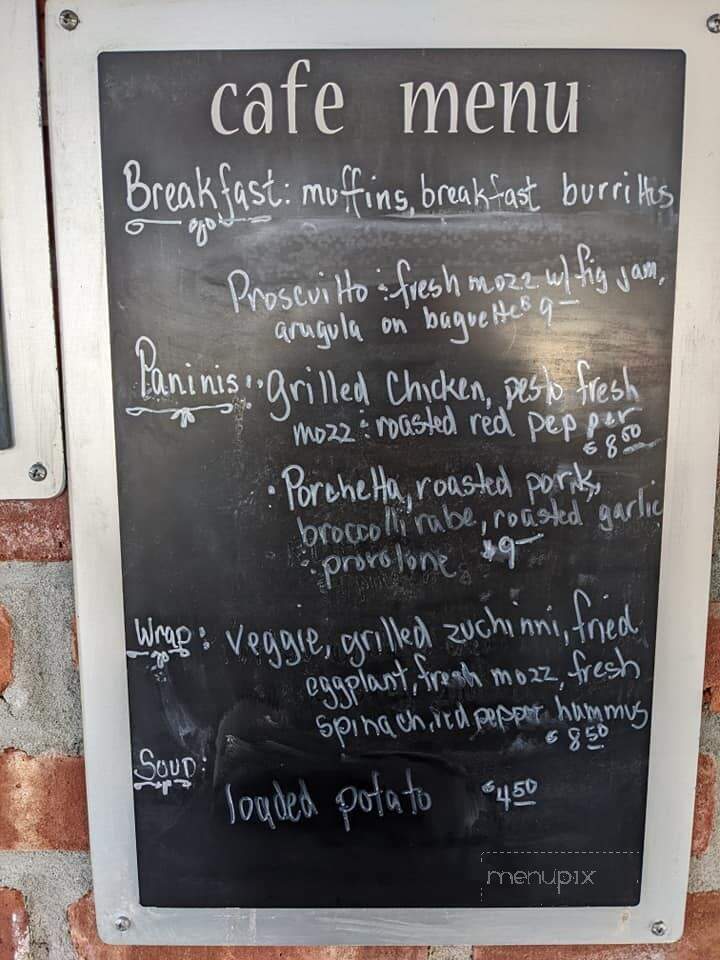 cafe menu
Breakfast: muffins, breakfast burrittos
Proscuitto: fresh mozz w/ fig jam,
arugula on baguette $9-
Paninis: grilled Chicken, pesto fresh
mozz : roasted red pepper
$8 50
. Porchetta, roasted pork,
broccolli rabe, roasted garlic
: provolone $9-
Wrap: veggie, grilled zuchinni, fried
eggplant, fresh mozz, fresh
spinach, red pepper hummus
$8 50
Soup:
loaded potato $4 50
menupix